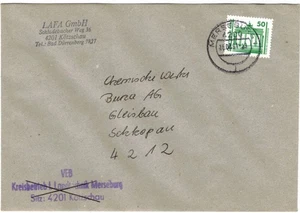 LAFA GmbH
4201 Kötzschau
Tel.: Bad Dürrenberg 7427
50
Chemische Werke
Buna AG
Gleisbau
Schkopau
4212
VEB
Kreisbetrieb f. Landtechnik Merseburg
Sitz: 4201 Kötzschau